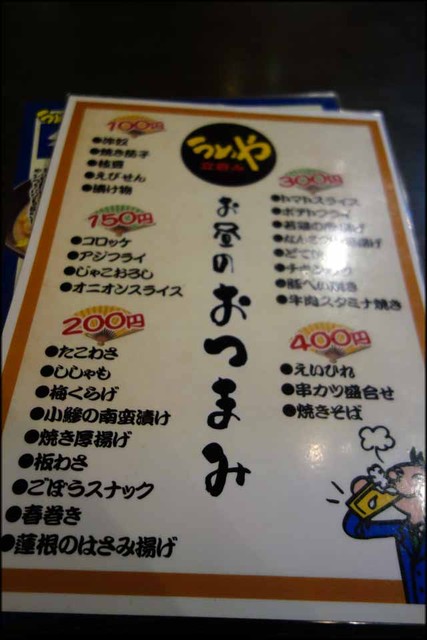 お昼のおつまみ
100円
●焼き茄子
●枝豆
●えびせん
●漬け物
150円
●コロッケ
●アジフライ
●じゃこおろし
●オニオンスライス
200円
●たこわさ
●ししゃも
●梅くらげ
●小鯵の南蛮漬け
●焼き厚揚げ
●板わさ
●ごぼうスナック
●春巻き
●蓮根のはさみ揚げ
300円
●トマトスライス
●ポテトフライ
●牛肉スタミナ焼き
400円
●えいひれ
●串カツ盛合せ
●焼きそば